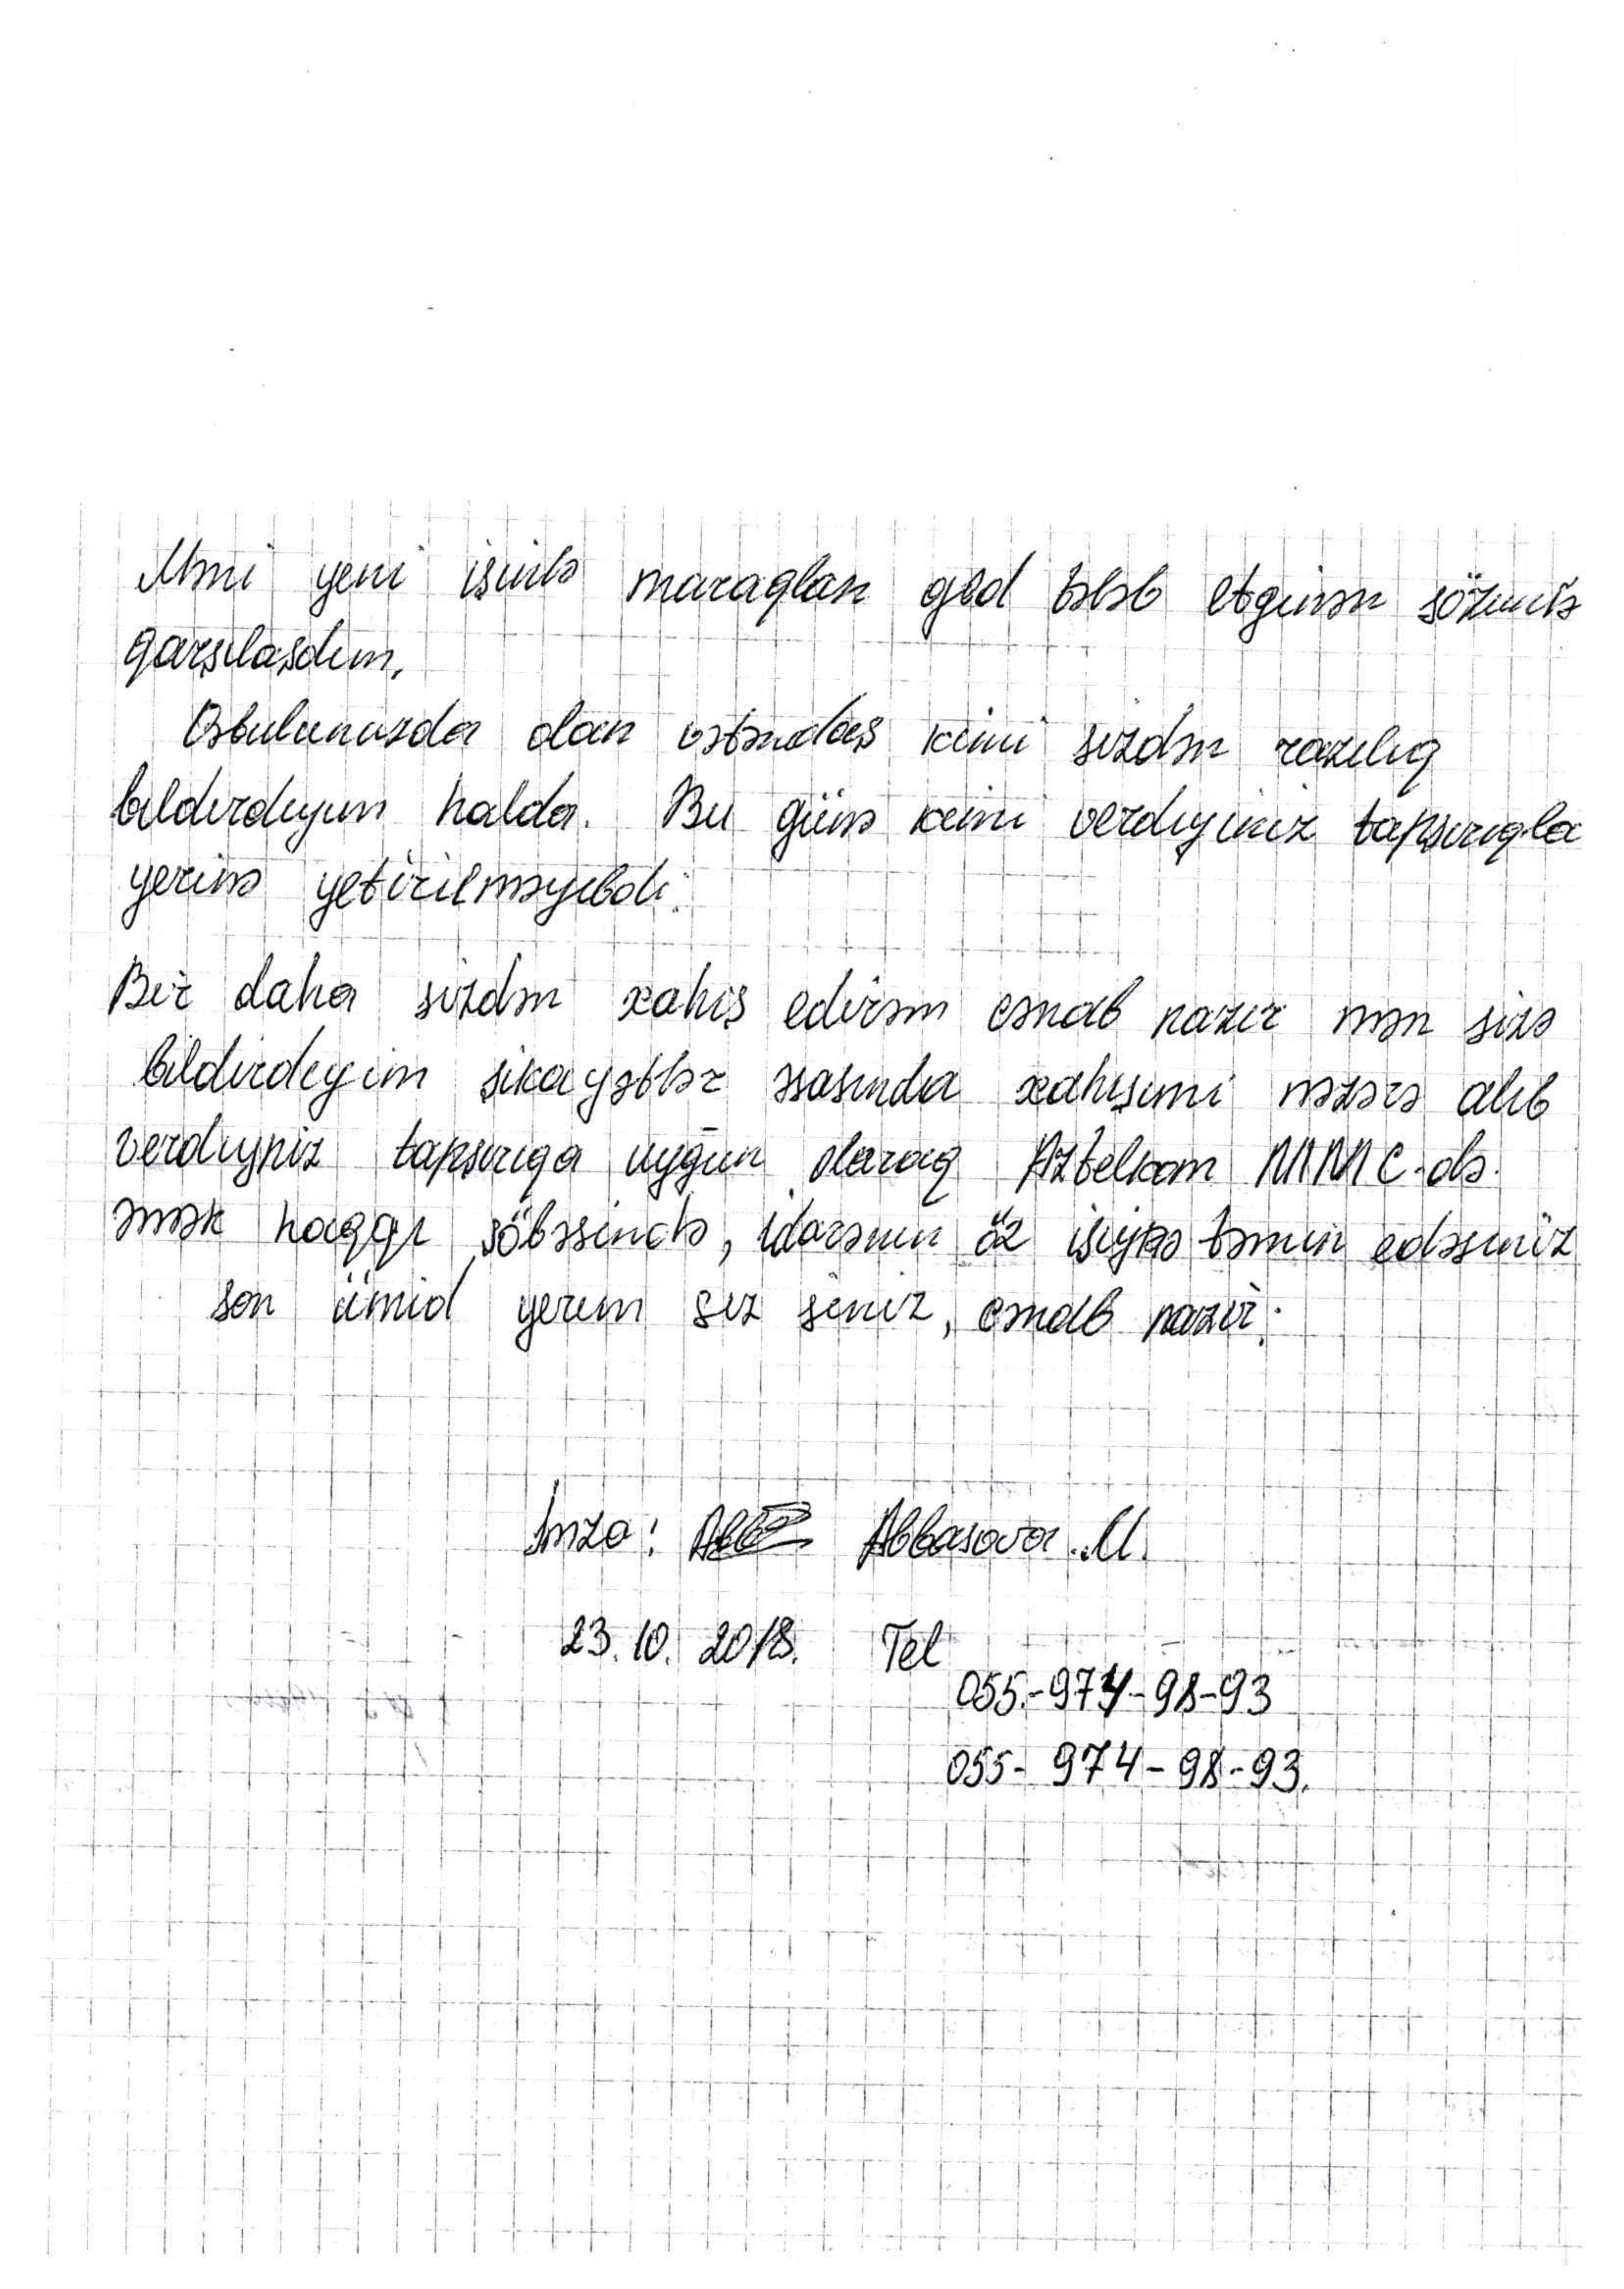 Məni yeni işinlə maraqlan gəd tələb etginən sözünlə
qarşılaşdım.
Qəbulunuzda olan vətəndaş kimi sizdən razılıq
bildirdiyim halda. Bu günə kimi verdiyiniz tapşırıqla
yerinə yetirilməyibdi.
Bir daha sizdən xahiş edirəm cənab nazir mən sizə
bildirdiyim şikayətlər əsasında xahişimi nəzərə alıb
verdiyniz tapşırıqa uyğun olaraq Aztelkom MMMC-də.
əmək haqqı şöbəsində, idarənin öz işiynə təmin edəsiniz
son ümid yerim siz siniz, cənab nazir.
İmza: Abbasova .M.
23.10. 2018. Tel
055-974-98-93
055- 974-98-93.